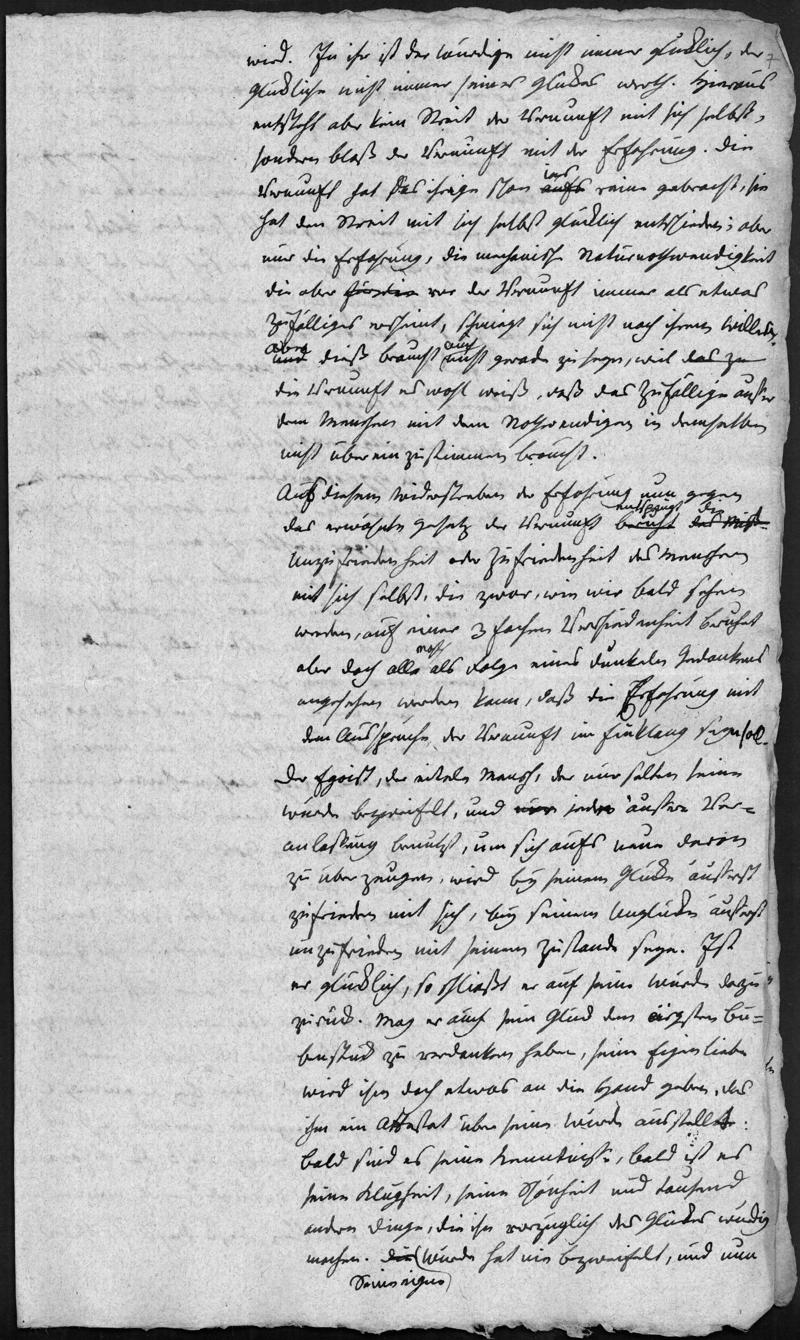 wird. In ihr ist der würdige nicht immer glücklich, der
glückliche nicht immer seines Glückes werth. Hieraus
entsteht aber kein Streit der Vernunft mit sich selbst,
sondern bloß der Vernunft mit der Erfahrung. Die
Vernunft hat das ihrige schon aufs ins reine gebracht, sie
hat den Streit mit sich selbst glücklich entschieden; aber
nur die Erfahrung, die mechanische Naturnothwendigkeit
die aber für die vor der Vernunft immer als etwas
zufälliges erscheint, schmiegt sich nicht nach ihrem Willen.
und aber dieß braucht auch nicht gerade zu seyn, weil das zu
die Vernunft es wohl weiß, daß das Zufällige außer
dem Menschen mit dem Nothwendigen in demselben
nicht übereinzustimmen braucht.
Aus diesem Widerstreben der Erfahrung nun gegen
das erwähnte Gesetz der Vernunft beruht entspringt das die Miß-
Unzufriedenheit oder Zufriedenheit des Menschen
mit sich selbst, die zwar, wie wir bald sehen
werden, auf einer 3fachen Verschiedenheit beruhet
aber doch allemahl als Folge eines dunkeln Gedankens
angesehen werden kann, daß die Erfahrung mit
dem Ausspruche der Vernunft im Einklang seyn soll.
Der Egoist, der eitele Mensch, der nur selten seine
Würde bezweifelt, und nur jede äußere Ver-
anlassung benutzt, um sich aufs neue davon
zu überzeugen, wird bey seinem Glücke äußerst
zufrieden mit sich, bey seinem Unglücke äußerst
unzufrieden mit seinem Zustande seyn. Ist
er glücklich, so schließt er auf seine Würde dazu
zurück. Mag er auch sein Glück dem ärgsten Bu-
benstück zu verdanken haben, seine Eigenliebe
wird ihm doch etwas an die Hand geben, das
ihm ein Attestat über seine Würde ausstellt:
bald sind es seine Kenntnisse, bald ist es
seine Klugheit, seine Schönheit und tausend
andere Dinge, die ihn vorzüglich des Glückes würdig
machen. Die Würde hat nie bezweifelt, und nun
Seine eigne